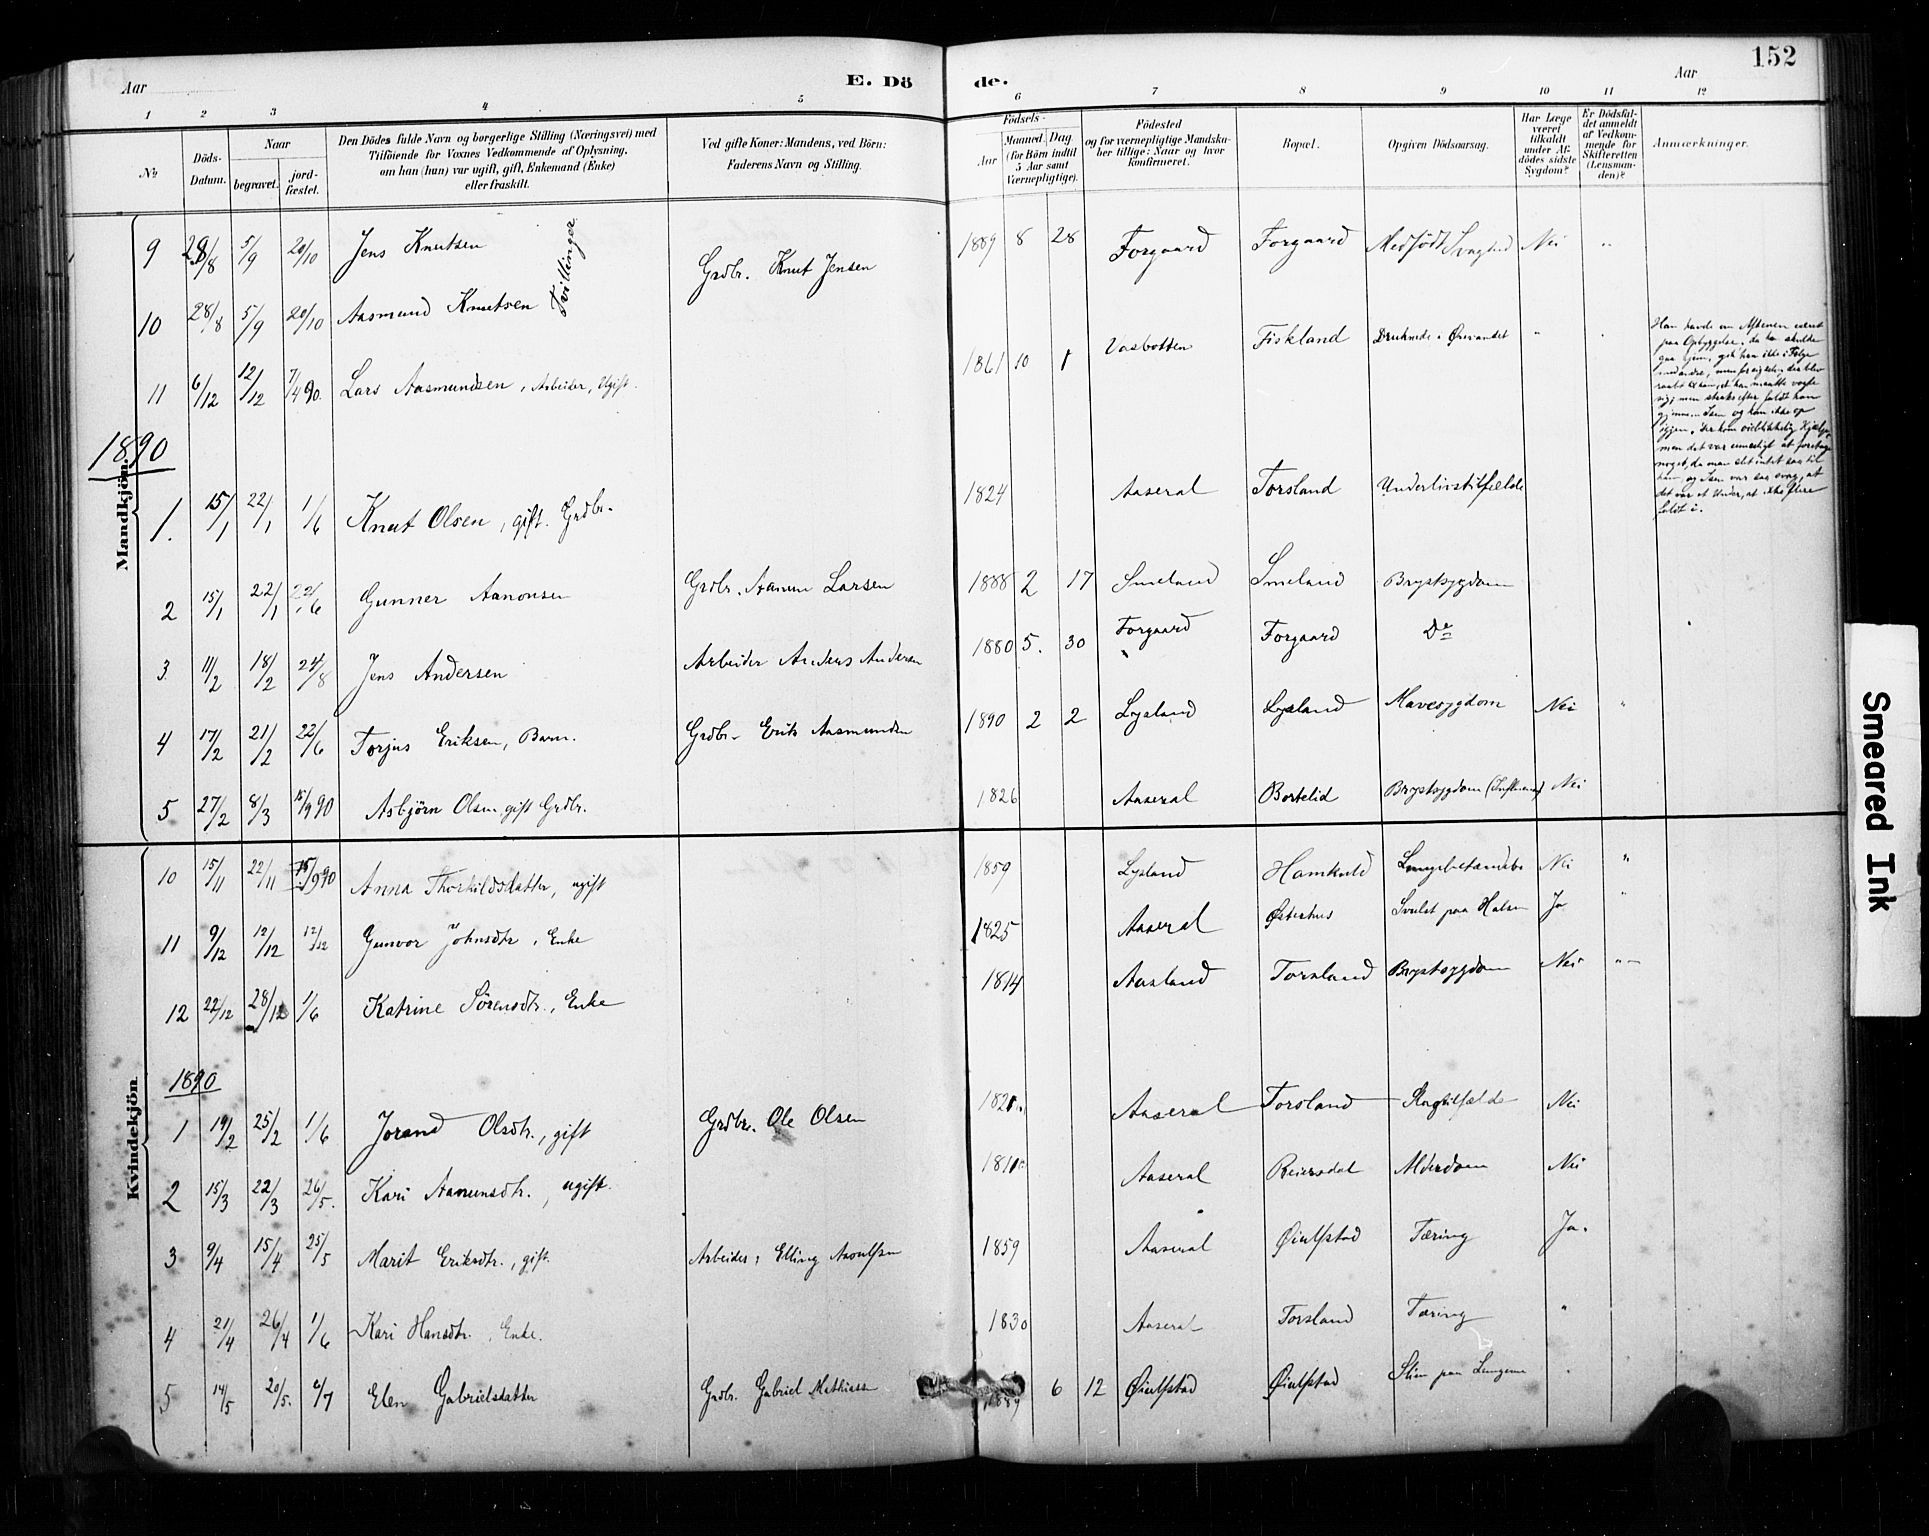 152
Aar
E. Dö
de.
Aar
1 2 3 4 5 6 7 8 9 10 11 12
№
Döds-Datum.
Naar
begravet.
jord-fæstet.
Den Dödes fulde Navn og borgerlige Stilling (Næringsvei) med
Tilföiende for Voxnes Vedkommende af Oplysning,
om han (hun) var ugift, gift, Enkemand (Enke)
eller fraskilt.
Ved gifte Koner: Mandens, ved Börn:
Faderens Navn og Stilling.
Födsels-
Aar
Maaned. Dag.
(for Börn indtil
5 Aar samt
Værnepligtige).
Födested
og for værnepligtige Mandska-
ber tillige: Naar og hvor
konfirmeret.
Bopæl.
Opgiven Dödsaarsag.
Har Læge
været
tilkaldt
under Af-
dödes sidste
Sygdom?
Er Dödsfal-
det anmeldt
af Vedkom-
mende for
Skifteretten
(Lensman-
den)?
Anmærkninger.
Mandkjön.
9 28/8 5/9 20/10 Jens Knutsen Tvillinger Grdbr. Knut Jensen 1889 8 28 Forgaard Forgaard Medfödt Svaghed Nei "
10 28/8 5/9 20/10 Aasmund Knutsen
11 6/12 12/12 7/4 90. Lars Aasmundsen, Arbeider, Ugift. 1861 10 1 Vasbotten Fiskland Druknede i Örevandet "
Han havde om Aftenen været
paa Opbyggelse, da han skulde
gaa hjem, gik han ikke i Følge
med andre, men for sig selv, der blev
raabt til ham, at han maatte vogte
sig; men straks efter faldt han
gjennem Isen og kom ikke op
igjen. Der kom øieblikkelig Hjælp,
men det var umuligt at foretage
noget, da man slet intet saa til
ham, og Isen var saa svag, at
det var et Under, at ikke flere
faldt i.
1890
1. 15/1 22/1 1/6 Knut Olsen, gift. Grdbr. 1824 Aaseral Torsland Underlivstilfælde
2 15/1 22/1 22/6 Gunner Aanonsen Grdbr. Aanun Larsen 1888 2 17 Smeland Smeland Brystsygdom
3. 11/2 18/2 24/8 Jens Andersen Arbeider Anders Andersen 1880 5. 30 Forgaard Forgaard Do
4 17/2 21/2 22/6 Torjus Eriksen, Barn. Grdbr. Erik Aasmundsen 1890 2 2 Lysland Lysland Mavesygdom Nei "
5 27/2 8/3 15/9 90 Asbjörn Olsen gift Grdbr. 1826 Aaseral Bortelid Brystsygdom (Influenza) Nei
Kvindekjön.
10 15/11 22/11 15/9 90 Anna Thorkildsdatter, ugift 1859 Lysland Hamkold Lungebetændelse Nei "
11 9/12 12/12 12/12 Gunvor Johnsdtr, Enke 1825 Aaseral Østerhus Svulst paa Halsen Ja "
12 22/12 28/12 1/6 Katrine Sörensdtr., Enke 1814 Aasland Torsland Brystsygdom Nei "
1890
1 19/2 25/2 1/6 Jorand Olsdtr., gift Grdbr. Ole Olsen Aaseral Torsland Slagtilfælde Nei
2 15/3 22/3 26/5. Kari Aanunsdtr., ugift. Aaseral Reiersdal Alderdom Nei
3 9/4 15/4 25/5 Marit Eriksdtr., gift. Arbeider, Elling Aasulfsen 1859 Aaseral Øiulfstad Tæring Ja.
4 21/4 26/4 1/6 Kari Hansdtr., Enke. 1830 Aaseral Torsland Tæring "
5 14/5 20/5. 6/7 Elen Gabrielsdatter Grdbr. Gabriel Mathiassen 1889 6 12 Øiulfstad Øiulfstad Slim paa Lungerne "
Smeared Ink